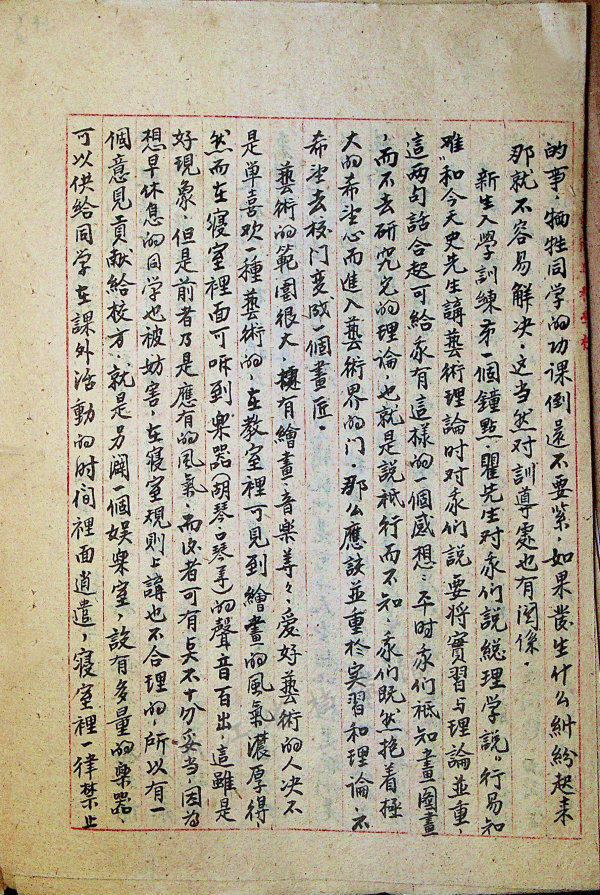 的事，牺牲同学的功课倒还不要紧，如果發生什么糾紛起来
那就不容易解决，这当然对訓導處也有関係。
新生入學訓練第一個鐘點，瞿先生对我们説總理学説"行易知
难"和今天史先生講藝術理論时对我们説要将實習与理論並重，
這两句話合起可給我有這樣的一個感想：平时我们祗知畫圖畫
，而不去研究它的理論，也就是説祗行而不知，我们既然抱着極
大的希望心而進入藝術界的门，那么應該並重於实習和理論，不
希望去校门变成一個畫匠。
藝術的範圍很大，有繪畫，音樂等々，爱好藝術的人决不
是单喜欢一種藝術的，在教室裡可見到繪畫的風氣濃厚得
然而在寝室裡面可听到樂器(胡琴口琴等)的聲音百出，這雖是
好現象，但是前者乃是應有的風氣，而后者可有点不十分妥当，因为
想早休息的同学也被妨害，在寝室規则上講也不合理的，所以有一
個意見貢献給校方，就是另闢一個娱樂室，設有多量的樂器，
可以供給同学在課外活動的时间裡面逍遣，寝室裡一律禁止